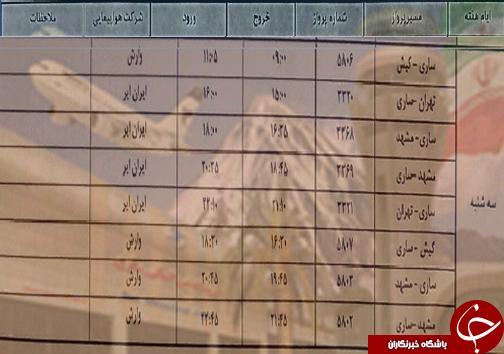 ایام هفته مسیرپرواز شماره پرواز خروج ورود شرکت هواپیمایی ملاحظات
ساری - کیش ۵۸۰۶ ۰۹:۰۰ ۱۱:۰۵ وارش
تهران - ساری ۳۳۲۰ ۱۵:۰۰ ۱۶:۰۰ ایران ایر
ساری - مشهد ۳۳۶۸ ۱۶:۳۵ ۱۸:۰۰ ایران ایر
مشهد - ساری ۳۳۶۹ ۱۸:۴۵ ۲۰:۳۵ ایران ایر
سه شنبه
ساری - تهران ۳۳۲۱ ۲۱:۰۰ ۲۲:۰۰ ایران ایر
کیش - ساری ۵۸۰۷ ۱۶:۲۰ ۱۸:۲۰ وارش
ساری - مشهد ۵۸۰۳ ۱۹:۴۵ ۲۰:۴۵ وارش
مشهد - ساری ۵۸۰۲ ۲۱:۴۵ ۲۲:۴۵ وارش
باشگاه خبرنگاران